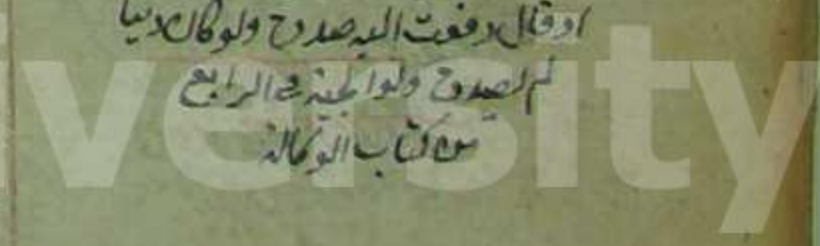 او قال دفعت اليه صدق ولو كان دينا
لم يصدق ولوالجية في الرابع
من كتاب الوكالة
versity